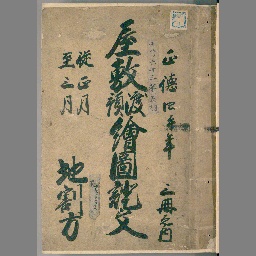 正徳四年
三冊之内
屋敷渡預繪圖證文
從正月
至三月
地割方